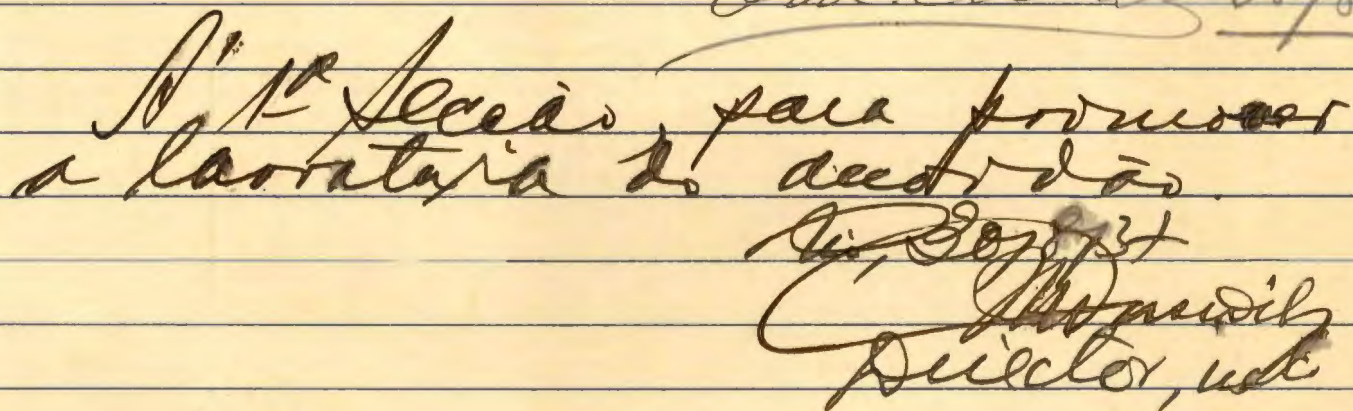 Á 1ª Secção, para promover
a lavratura do accordão.
Rio, 30/8/37
Director,